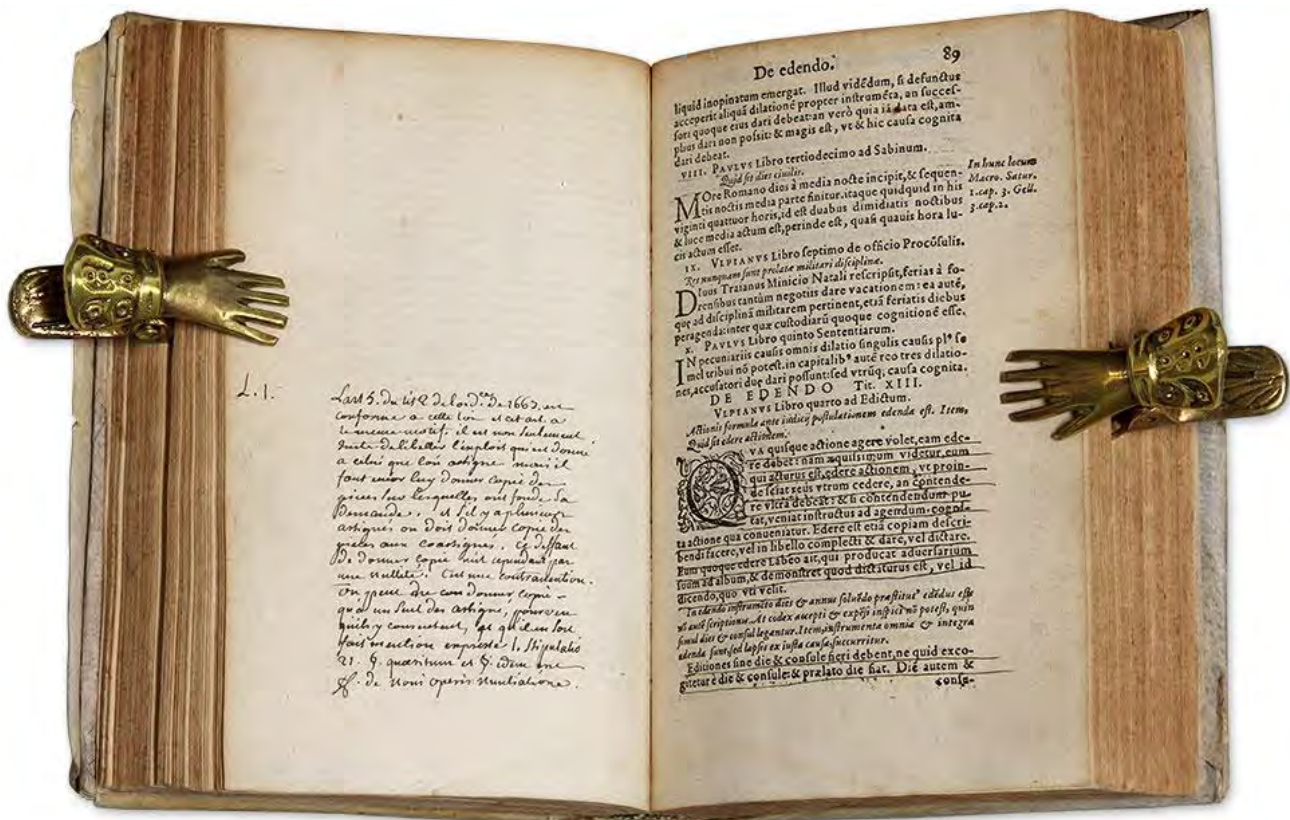 L. I.
L'art 5. du tit 2 de lord.ce de 1667. est
conforme a cette loi et cet art. a
le meme motif. il est non seulement
de libeller l'exploit qui est donné
a celui que l'on assigne mais il
faut encor luy donner copie des
pieces sur lesquelles est fondé sa
demande. et s'il y a plusieurs
assignés on doit donner copie des
pieces aux coassignés. Ce deffaut
de donner copie n'est cependant pas
une nullité. C'est une contravention.
On peut ne donner copie
qu'a un seul des assigné, pourveu
qu'ils y consentent, et qu'il en soit
fait mention expresse l. stipulatio
21. §. quæsitum et §. idem
ff. de novi operis nuntiatione.
De edendo. 89
liquid inopinatum emergat. Illud vidēdum, si defunctus
acceperit aliquā dilationē propter instrumēta, an succes-
sori quoque eius dari debeat: an verò quia iā data est, am-
plius dari non possit: & magis est, vt & hic causa cognita
dari debeat.
VIII. PAVLVS Libro tertiodecimo ad Sabinum.
Quid sit dies ciuilis.
MOre Romano dies à media nocte incipit, & sequen-
tis noctis media parte finitur. itaque quidquid in his
viginti quattuor horis, id est duabus dimidiatis noctibus
& luce media actum est, perinde est, quasi quauis hora lu-
cis actum esset.
In hunc locum
Macro. Satur.
1. cap. 3. Gell.
3. cap. 2.
IX. VLPIANVS Libro septimo de officio Procōsulis.
Res nunquam sunt prolatæ militari disciplinæ.
DIuus Traianus Minicio Natali rescripsit, ferias à fo-
rensibus tantùm negotiis dare vacationem: ea autē,
quę ad disciplinā militarem pertinent, etiā feriatis diebus
peragenda: inter quæ custodiarū quoque cognitionē esse.
X. PAVLVS Libro quinto Sententiarum.
IN pecuniariis causis omnis dilatio singulis causis plꝰ se
mel tribui nō potest. in capitalibꝰ autē reo tres dilatio-
nes, accusatori duę dari possunt: sed vtrūq; causa cognita.
DE EDENDO Tit. XIII.
VLPIANVS Libro quarto ad Edictum.
Actionis formula ante iudicij postulationem edenda est. Item,
Quid sit edere actionem.
QVA quisque actione agere volet, eam ede-
re debet: nam æquissimum videtur, eum
qui acturus est, edere actionem, vt proin-
de sciat reus vtrum cedere, an contende-
re vltrà debeat: & si contendendum pu-
tat, veniat instructus ad agendum, cogni-
ta actione qua conueniatur. Edere est etiā copiam descri-
bendi facere, vel in libello complecti & dare, vel dictare.
Eum quoque edere Labeo ait, qui producat aduersarium
suum ad album, & demonstret quod dictaturus est, vel id
dicendo, quo vti velit.
In edendo instrumēto dies & annus scripturæ. At codex accepti & expēsi inspici nō potest, quin
simul dies & consul legantur. Item, instrumenta omnia & integra
edenda sunt, sed lapsis ex iusta causa, succurritur.
Editiones sine die & consule fieri debent, ne quid exco-
gitetur è die & consule: & prælato die fiat. Diē autem &
consu-